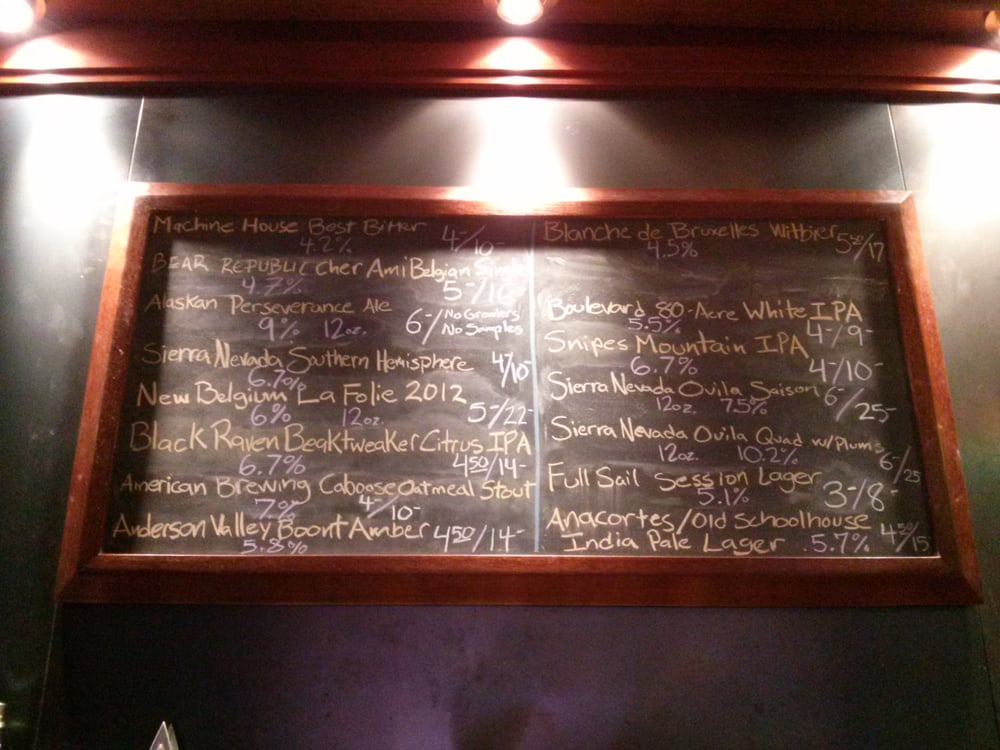 Machine House Best Bitter 4-/10-
4.2%
BEAR REPUBLIC Cher Ami Belgian Single
4.7% 5-/10-
Alaskan Perseverance Ale
9% 12oz. 6-/ No Growlers
No Samples
Sierra Nevada Southern Hemisphere 4/10-
6.7%
New Belgium La Folie 2012
6% 12oz. 5/22-
Black Raven Beaktweaker Citrus IPA
6.7% 450/14-
American Brewing Caboose Oatmeal Stout
7% 4-/10-
Anderson Valley Boont Amber 450/14-
5.8%
Blanche de Bruxelles Witbier 550/17
4.5%
Boulevard 80-Acre White IPA
5.5% 4-/9-
Snipes Mountain IPA
6.7% 4-/10-
Sierra Nevada Ovila Saison 6-/25-
12oz. 7.5%
Sierra Nevada Ovila Quad w/Plums
12oz. 10.2% 6-/25
Full Sail Session Lager 3-/8-
5.1%
Anacortes/Old Schoolhouse
India Pale Lager 5.7% 450/15